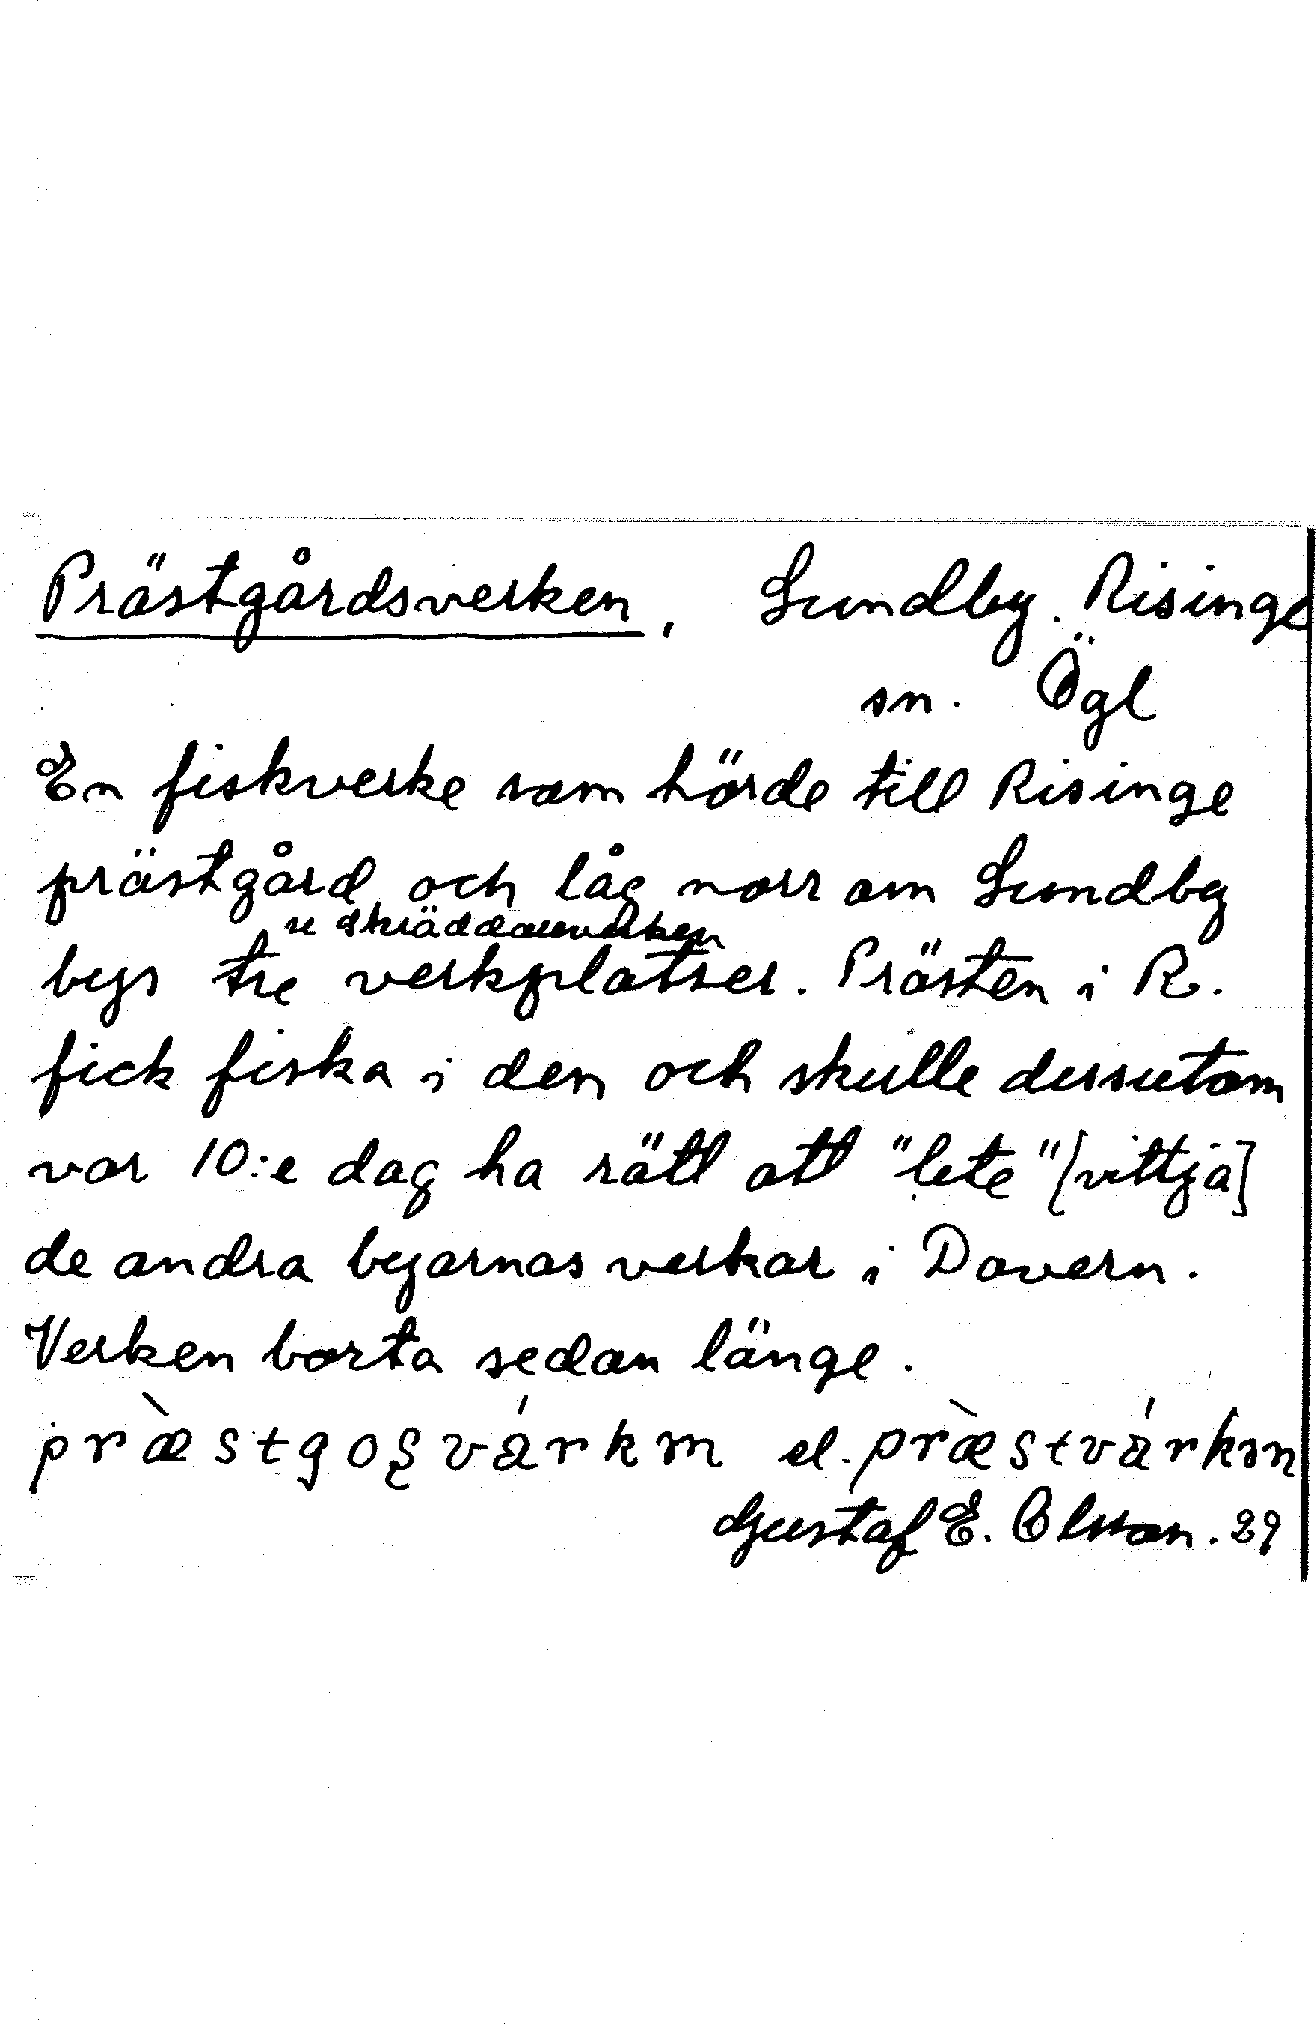 Prästgårdsverken, Lundby. Risinge
sn. Ögl
En fiskverke som hörde till Risinge
prästgård och låg norr om Lundby
se skräddareverken
bys tre verkplatser. Prästen i R.
fick fiska i den och skulle dessutom
var 10:e dag ha rätt att "lete" [vittja]
de andra byarnas verkar i Dovern.
Verken borta sedan länge.
præ̀stgoʂvárkən el. præ̀stvárkən
Gustaf E. Olsson. 29